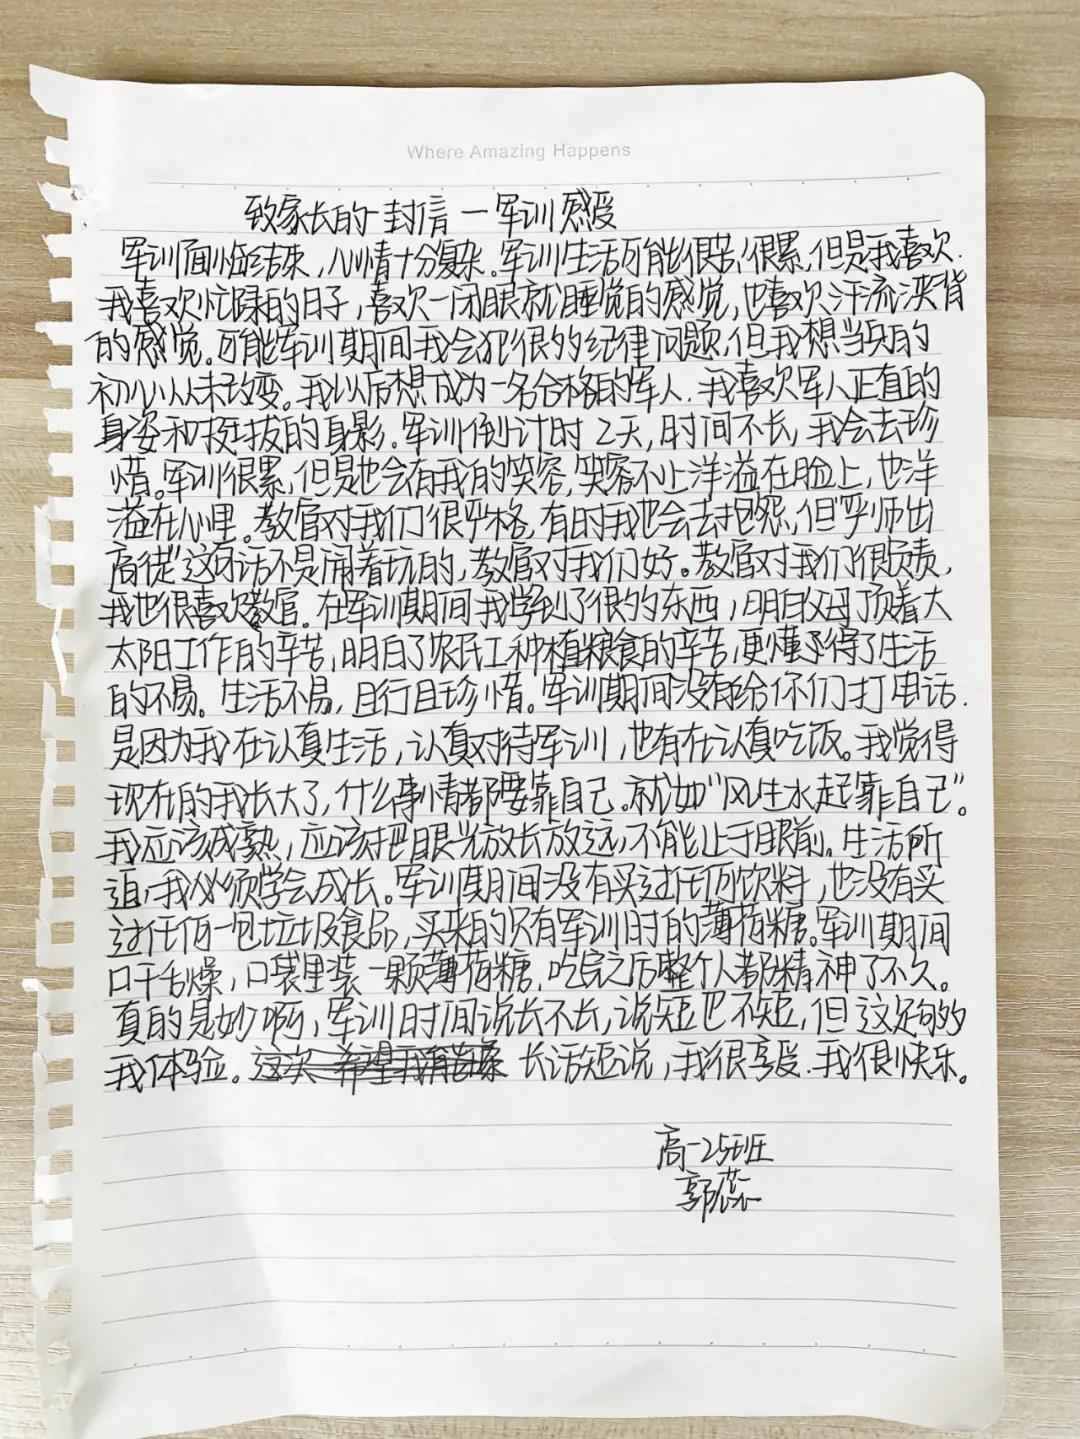 Where Amazing Happens
致家长的一封信一军训感受
军训面临结束,心情十分复杂.军训生活可能很苦,很累,但是我喜欢.
我喜欢忙碌的日子,喜欢一闭眼就睡觉的感觉,也喜欢汗流浃背
的感觉.可能军训期间我会犯很多纪律问题,但我想当兵的
初心从未改变。我以后想成为一名合格的军人.我喜欢军人正直的
身姿和挺拔的身影.军训倒计时2天,时间不长,我会去珍
惜。军训很累,但是也会有我的笑容,笑容不止洋溢在脸上,也洋
溢在心里。教官对我们很严格,有时我也会去抱怨,但“严师出
高徒”这句话不是闹着玩的,教官对我们好。教官对我们很负责,
我也很喜欢教官.在军训期间我学到了很多东西,明白父母顶着大
太阳工作的辛苦,明白了农民工种植粮食的辛苦,更懂得了生活
的不易。生活不易,且行且珍惜。军训期间没有给你们打电话.
是因为我在认真生活,认真对待军训,也有在认真吃饭。我觉得
现在的我长大了,什么事情都要靠自己.就如“风生水起靠自己”。
我应该成熟,应该把眼光放长放远,不能止于眼前。生活所
迫,我必须学会成长。军训期间没有买过任何饮料,也没有买
过任何一包垃圾食品,买来的只有军训时的薄荷糖.军训期间
口干舌燥,口袋里装一颗薄荷糖,吃完之后整个人都精神了不久。
真的是妙啊,军训时间说长不长,说短也不短,但这足够多
我体验。长话短说,我很享受.我很快乐。
高一25班
郭蕊